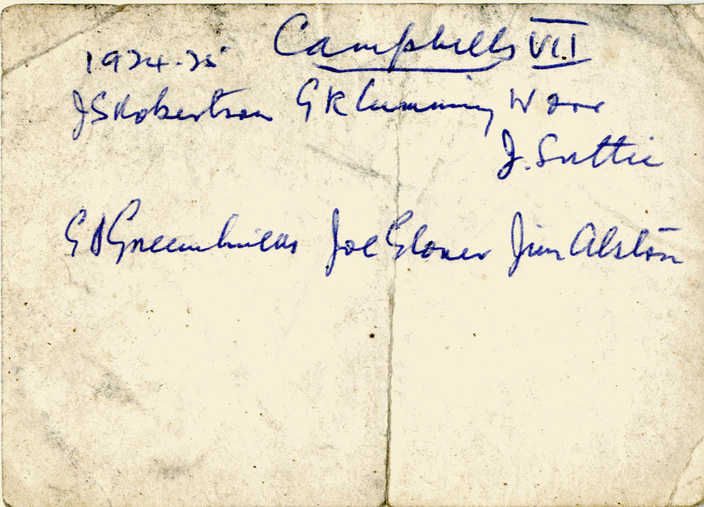 1924-25 Campbells VI.1
J S Robertson G K Cumming W Orr
J. Suttie
G Greenhields Joe Glover Jim Alston